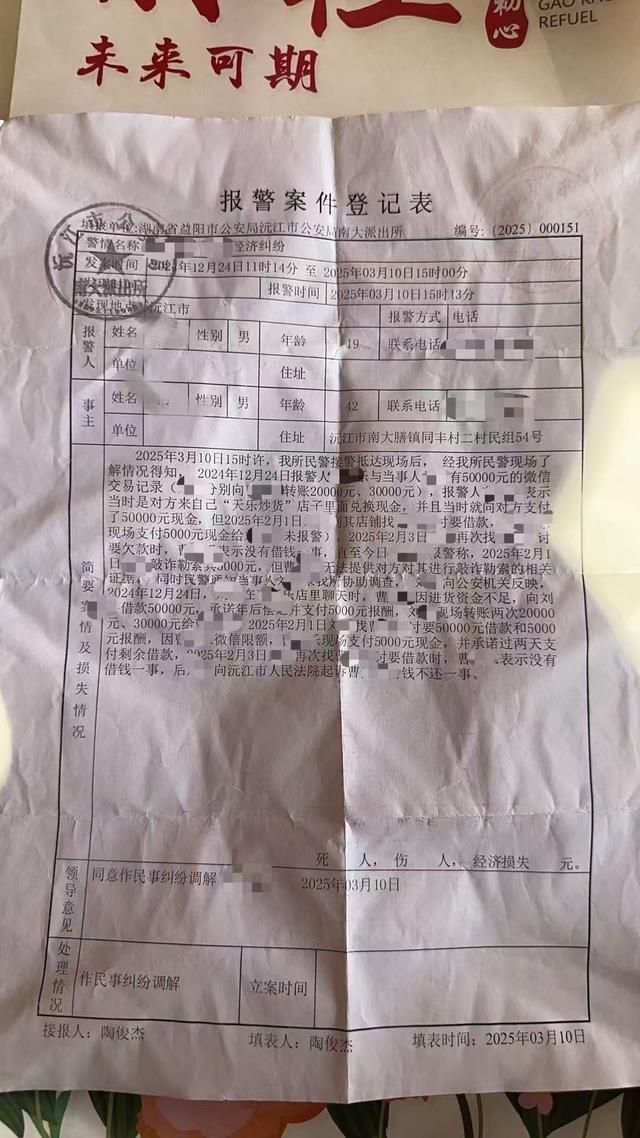 GAO
REFUEL
初心
未来可期
报警案件登记表
填表单位:湖南省益阳市公安局沅江市公安局南大派出所 编号:(2025)000151
警情名称 经济纠纷
发案时间 2024年12月24日11时14分 至 2025年03月10日15时00分
报警时间 2025年03月10日15时13分
发现地点 沅江市 报警方式 电话
报警人 姓名 性别 男 年龄 19 联系电话
单位 住址
事主 姓名 性别 男 年龄 42 联系电话
单位 住址 沅江市南大膳镇同丰村二村民组54号
简要案情及损失情况
2025年3月10日15时许,我所民警接警抵达现场后,经我所民警现场了
解情况得知,2024年12月24日报警人 与当事人 有50000元的微信
交易记录( 分别向 转账20000元、30000元),报警人 表示
当时是对方来自己“天乐炒货”店子里面兑换现金,并且当时就向对方支付
了50000元现金,但2025年2月1日 到其店铺找 讨要借款,
现场支付5000元现金给 未报警)2025年2月3日 再次找 讨
要欠款时,曹 表示没有借钱一事,直至今日 报警称,2025年2月1
日 敲诈勒索其5000元,但曹 无法提供对方对其进行敲诈勒索的相关
证据,同时民警通知当事人刘 来我所协助调查, 向公安机关反映,
2024年12月24日, 至 乐店里聊天时,曹 因进货资金不足,向刘
借款50000元,承诺年后偿还并支付5000元报酬,刘 现场转账两次20000
元、30000元给 2025年2月1日刘 找 讨要50000元借款和5000
元报酬,因曹 微信限额, 乐现场支付5000元现金,并承诺过两天支
付剩余借款,2025年2月3日 再次找 讨要借款时,曹 表示没有
借钱一事,后 向沅江市人民法院起诉曹 钱不还一事。
死 人,伤 人,经济损失 元。
领导意见 同意作民事纠纷调解 2025年03月10日
处理情况 作民事纠纷调解 立案时间
接报人:陶俊杰 填表人:陶俊杰 填表时间:2025年03月10日